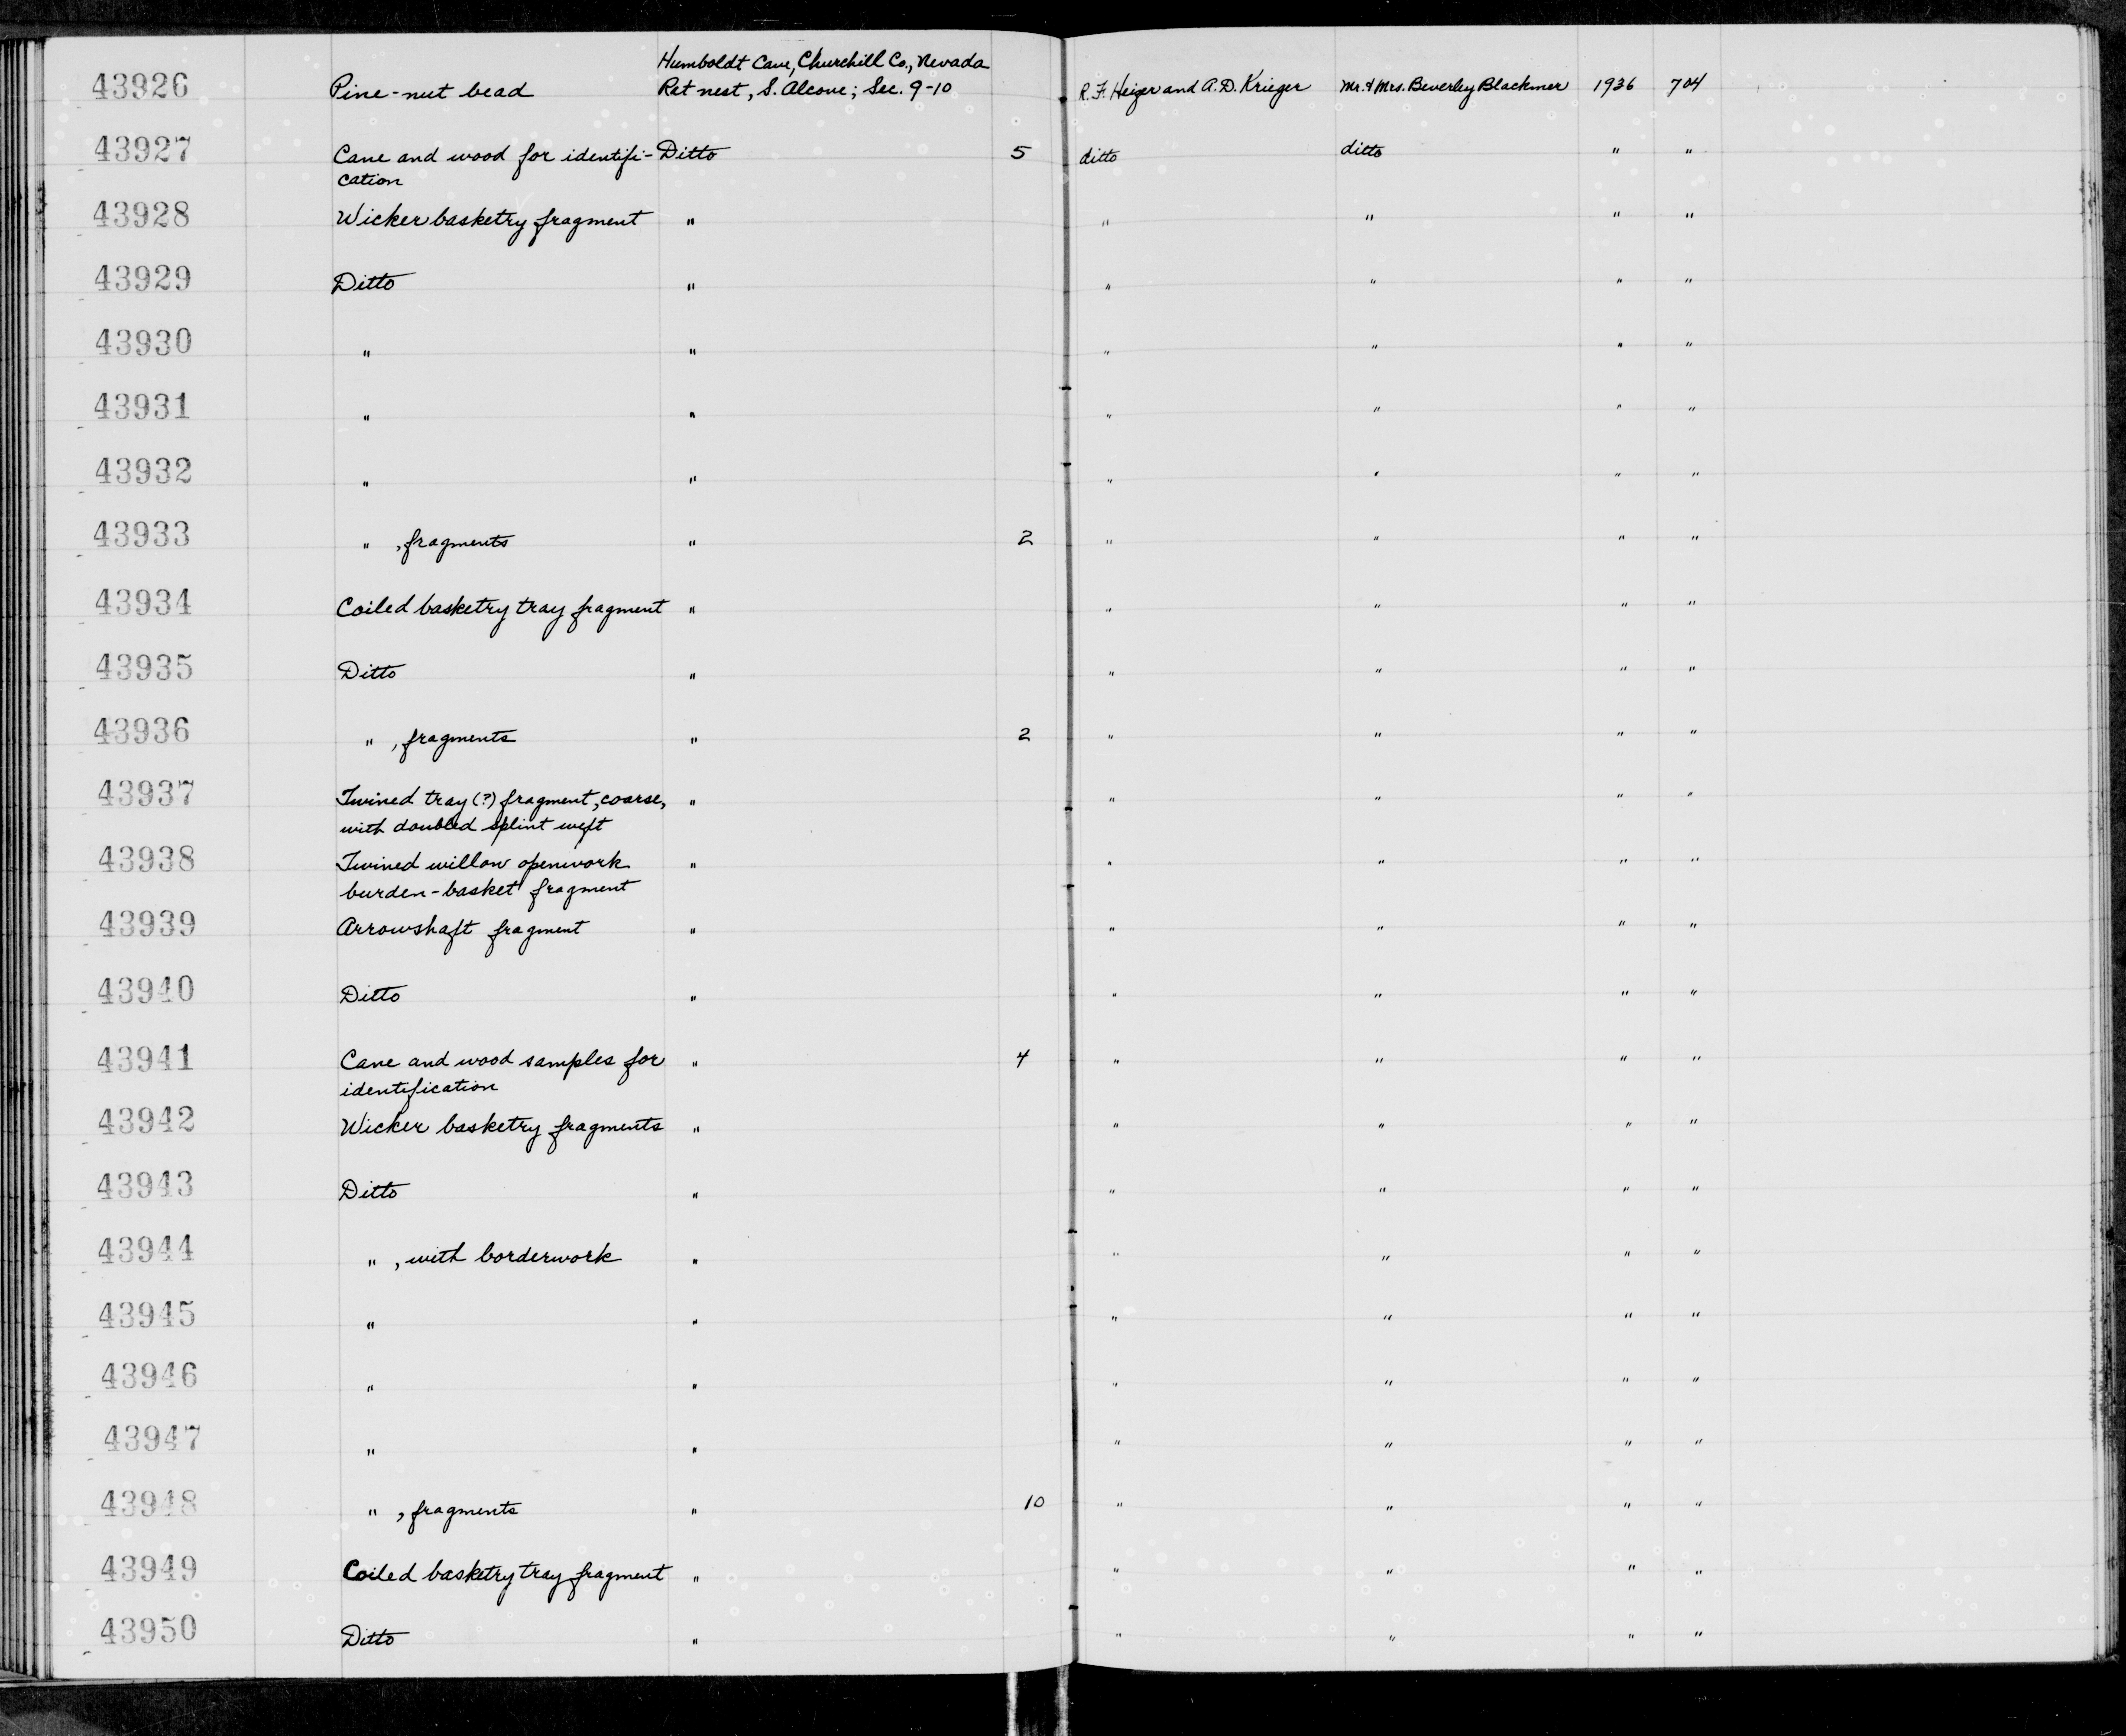 Humboldt Cave, Churchill Co., Nevada
43926 Pine-nut bead Rat nest, S. Alcove; Sec. 9-10 R. F. Heizer and A. D. Krieger Mr. & Mrs. Beverley Blackmer 1936 704
43927 Cane and wood for identifi- Ditto 5 ditto ditto " "
cation
43928 Wicker basketry fragment " " " " "
43929 Ditto " " " " "
43930 " " " " " "
43931 " " " " " "
43932 " " " " " "
43933 " , fragments " 2 " " " "
43934 Coiled basketry tray fragment " " " " "
43935 Ditto " " " " "
43936 " , fragments " 2 " " " "
43937 Twined tray (?) fragment, coarse, " " " " "
with doubled splint weft
43938 Twined willow openwork " " " " "
burden-basket fragment
43939 Arrowshaft fragment " " " " "
43940 Ditto " " " " "
43941 Cane and wood samples for " 4 " " " "
identification
43942 Wicker basketry fragments " " " " "
43943 Ditto " " " " "
43944 " , with borderwork " " " " "
43945 " " " " " "
43946 " " " " " "
43947 " " " " " "
43948 " , fragments " 10 " " " "
43949 Coiled basketry tray fragment " " " " "
43950 Ditto " " " " "